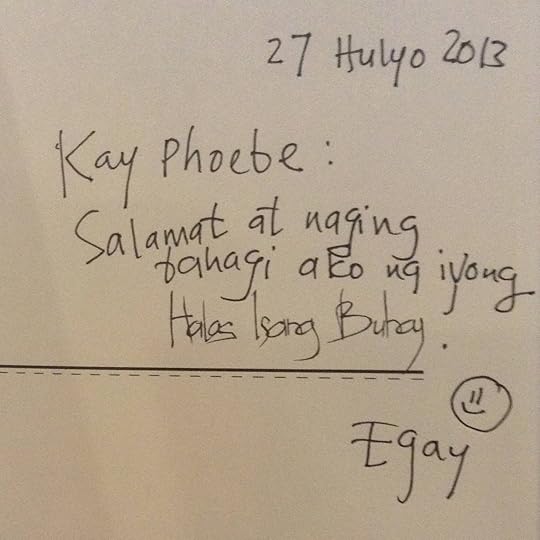 27 Hulyo 2013
Kay Phoebe:
Salamat at naging
bahagi ako ng iyong
Halos Isang Buhay.
Egay